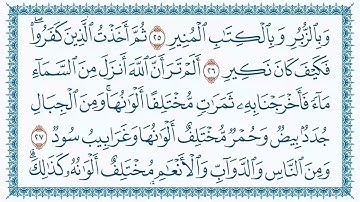 وَبِالزُّبُرِ وَبِالْكِتَٰبِ الْمُنِيرِ ٢٥ ثُمَّ أَخَذْتُ الَّذِينَ كَفَرُوا۟ۖ
فَكَيْفَ كَانَ نَكِيرِ ٢٦ أَلَمْ تَرَ أَنَّ اللَّهَ أَنزَلَ مِنَ السَّمَآءِ
مَآءً فَأَخْرَجْنَا بِهِۦ ثَمَرَٰتٍ مُّخْتَلِفًا أَلْوَٰنُهَاۚ وَمِنَ الْجِبَالِ
جُدَدٌۢ بِيضٌ وَحُمْرٌ مُّخْتَلِفٌ أَلْوَٰنُهَا وَغَرَابِيبُ سُودٌ ٢٧
وَمِنَ النَّاسِ وَالدَّوَآبِّ وَالْأَنْعَٰمِ مُخْتَلِفٌ أَلْوَٰنُهُۥ كَذَٰلِكَۗ